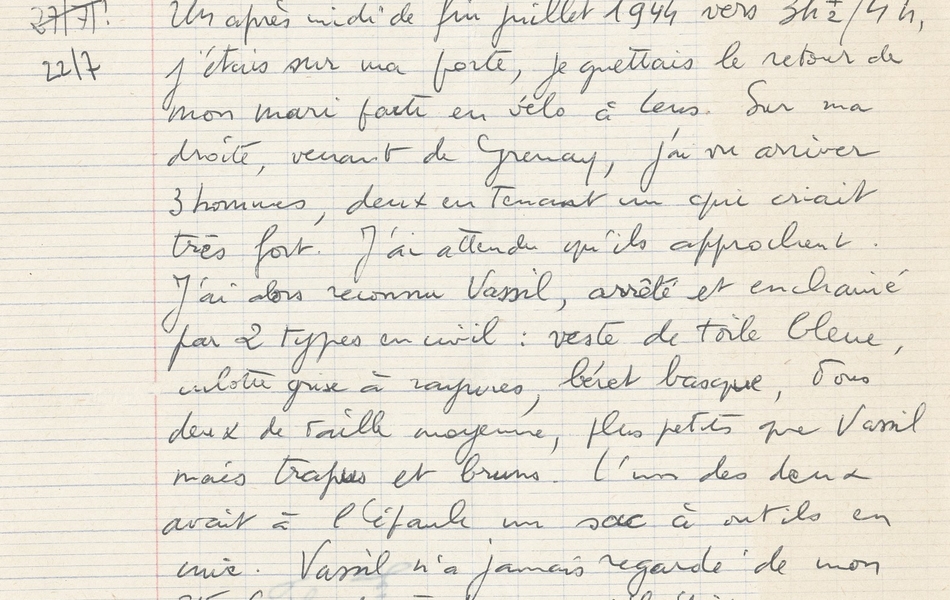 Un après midi de fin juillet 1944 vers 3h½/4h,
22/7
j'étais sur ma porte, je guettais le retour de
mon mari parti en vélo à Lens. Sur ma
droite, venant de Grenay, j'ai vu arriver
3 hommes, deux en tenant un qui criait
très fort. J'ai attendu qu'ils approchent.
J'ai alors reconnu Vassil, arrêté et enchainé
par 2 types en civil : veste de toile bleue,
culotte grise à rayures, béret basque, Tous
deux de taille moyenne, plus petits que Vassil
mais trapus et bruns. L'un des deux
avait à l'épaule un sac à outils en
cuir. Vassil n'a jamais regardé de mon